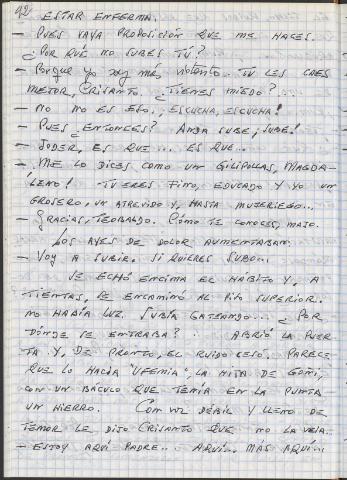 92
ESTAR ENFERMA.
- PUES VAYA PROPOSICIÓN QUE ME HACES.
¿POR QUÉ NO SUBES TÚ?
- Porque yo soy más violento. TÚ LES CAES
MEJOR, CRISANTO. ¿TIENES MIEDO?
- NO NO ES ESO. ¡ESCUCHA, ESCUCHA!
- PUES ¿ENTONCES? ANDA SUBE, ¡SUBE!
- JODER, ES QUE... ES QUE...
- ME LO DICES COMO UN GILIPOLLAS, MAGDA-
LENO! TÚ ERES FINO, EDUCADO Y YO UN
GROSERO, UN ATREVIDO Y, HASTA MUJERIEGO...
- GRACIAS, TEOBALDO. CÓMO TE CONOCES, MAJO.
LOS AYES DE DOLOR AUMENTABAN.
- VOY A SUBIR. SI QUIERES SUBO...
SE ECHÓ ENCIMA EL HÁBITO Y, A
TIENTAS, SE ENCAMINÓ AL PISO SUPERIOR.
NO HABÍA LUZ. SUBÍA GATEANDO... ¿POR
DÓNDE SE ENTRABA? ABRIÓ LA PUER
TA Y, DE PRONTO, EL RUIDO CESÓ. PARECE
QUE LO HACÍA "UFEMIA", LA HITA DE GOMI,
CON UN BÁCULO QUE TENÍA EN LA PUNTA
UN HIERRO. CON VOZ DÉBIL Y LLENO DE
TEMOR LE DIJO CRISANTO QUE NO LA VEÍA.
- ESTOY AQUÍ PADRE... AQUÍ... MÁS AQUÍ...